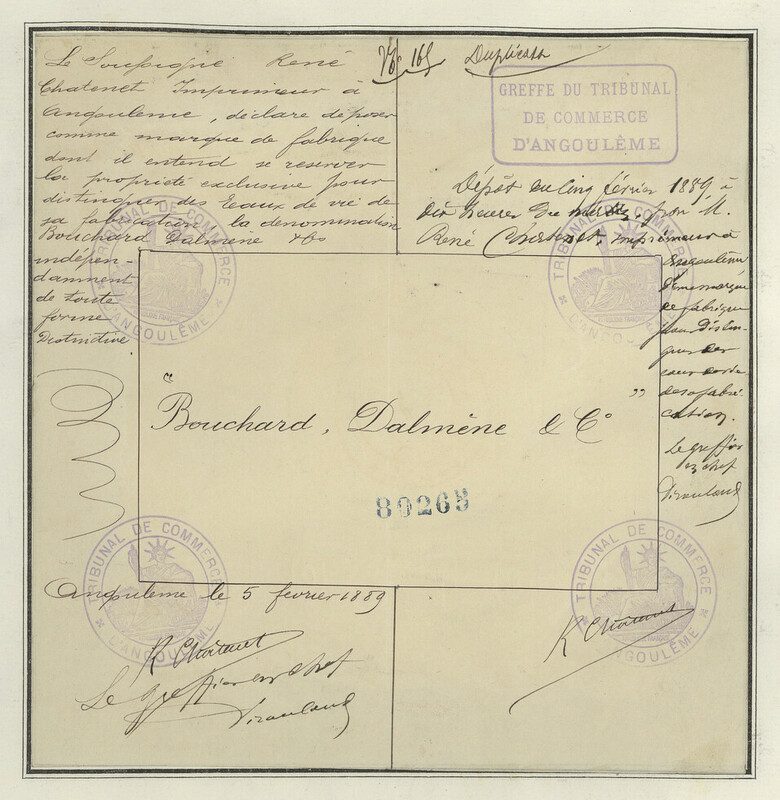 Le Soussigné René
Chatenet Imprimeur à
Angoulême, déclare déposer
comme marque de fabrique
dont il entend se reserver
la propriété exclusive pour
distinguer des Eaux de vie de
sa fabrication la denomination
Bouchard Dalmène & Co
indépen-
damment
de toute
forme
Distinctive
No 165 Duplicata
GREFFE DU TRIBUNAL
DE COMMERCE
D'ANGOULÊME
Dépôt du cinq février 1889 à
dix heures du matin, par M.
René Chatenet imprimeur à
Angoulême
D'une marque
de fabrique
pour Distin-
guer des
eaux de vie
de sa fabri-
cation.
Le greffier
en chef
TRIBUNAL DE COMMERCE
D'ANGOULÊME
TRIBUNAL DE COMMERCE
D'ANGOULÊME
" Bouchard, Dalmène & Co "
80265
TRIBUNAL DE COMMERCE
D'ANGOULÊME
TRIBUNAL DE COMMERCE
D'ANGOULÊME
Angoulême le 5 fevrier 1889
R Chatenet
Le greffier en chef
R Chatenet